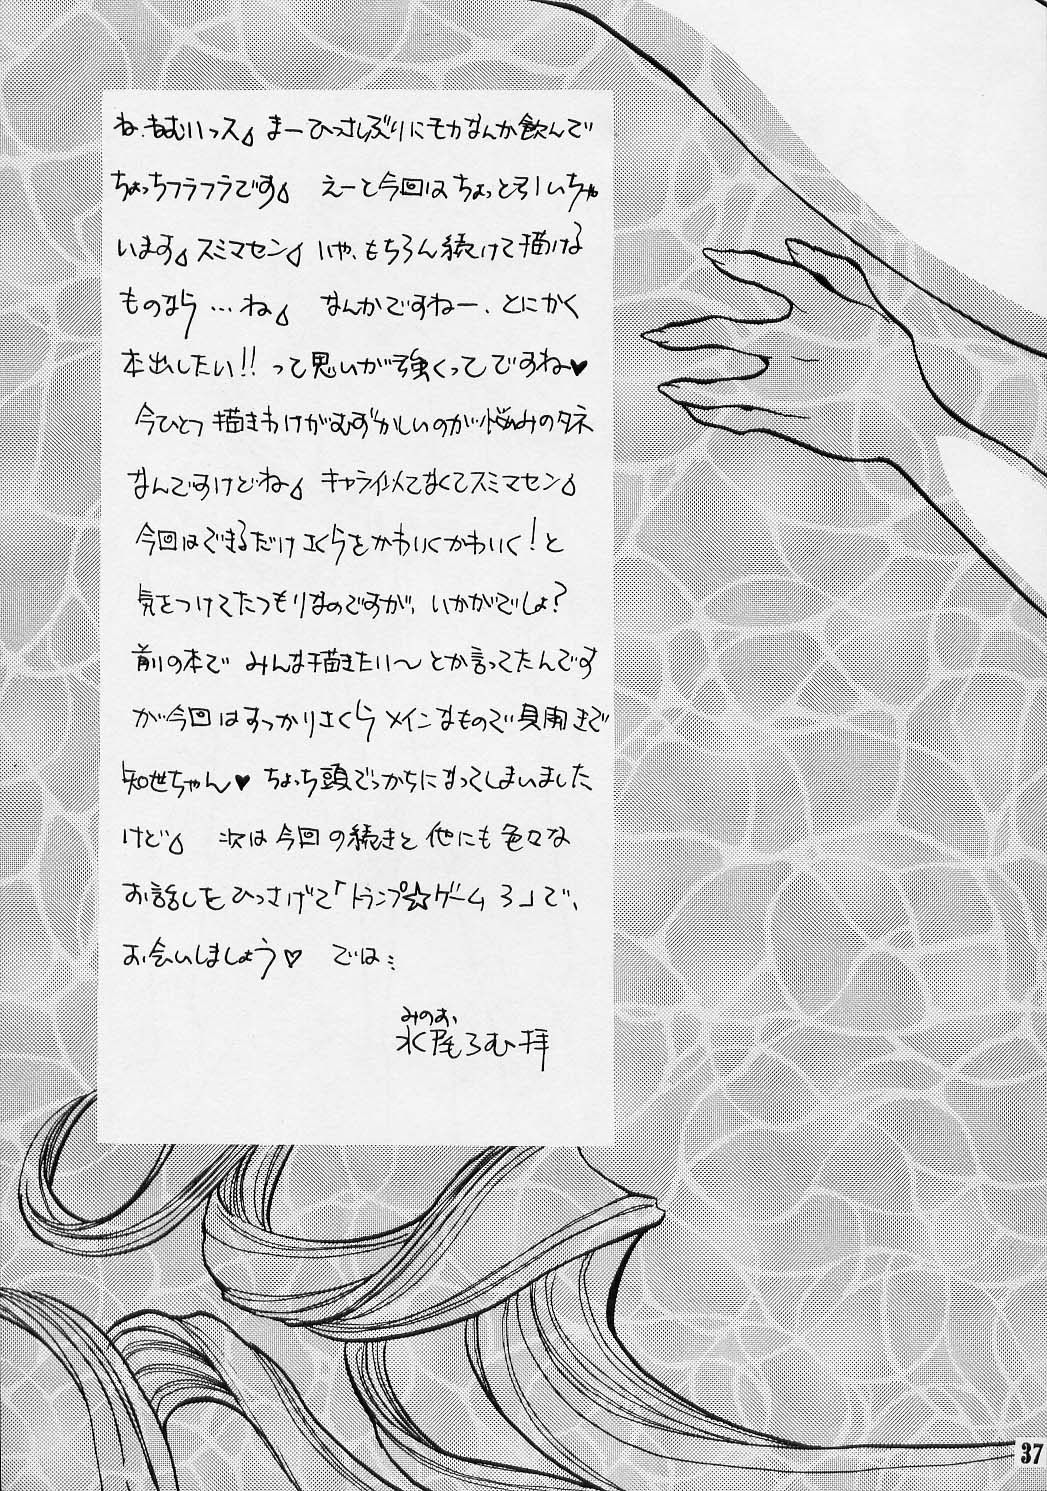 ね、ねむいっス。まーひっさしぶりにモカなんか飲んで
ちょっちフラフラです。 えーと今回はちょっと引いちゃ
います。スミマセン。いや、もちろん続けて描ける
ものなら…ね。 なんかですねー、とにかく
本出したい!!って思いが強くってですね♥
今ひとつ描きわけがむずかしいのが悩みのタネ
なんですけどね。 キャラ似てなくてスミマセン。
今回はできるだけさくらをかわいくかわいく!と
気をつけてたつもりなのですが、いかがでしょ?
前の本で みんな描きたい〜とか言ってたんです
が今回はすっかりさくらメインなもので 具開きで
知世ちゃん♥ ちょっち頭でっかちになってしまいました
けど。 次は今回の続きと他にも色々な
お話しをひっさげて「トランプ☆ゲーム3」で、
お会いしましょう♡ では…
みのお
水尾ろむ拝
37